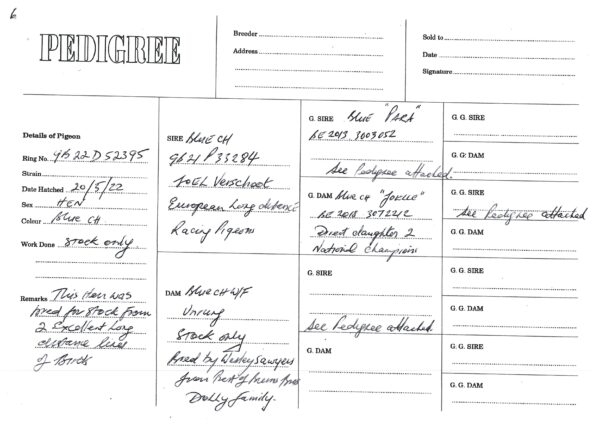 6
PEDIGREE
Breeder
Address
Sold to
Date
Signature
Details of Pigeon
Ring No. gb 22 D 52395
Strain
Date Hatched 20/5/22
Sex HEN
Colour Blue CH
Work Done Stock only
Remarks This Hen was
bred for stock from
2 Excellent Long
distance lines
of Birds
SIRE Blue CH
gb 21 P 33284
Joel Verschoet
European Long distance
Racing Pigeons
DAM Blue CH W/F
Unrung
Stock only
Bred by Wesley Sawyers
from Best of
Dolly family.
G. SIRE Blue "PARA"
BE 2013 3003052
See Pedigree attached.
G. DAM Blue CH "Joelle"
BE 2018 3072212
Direct daughter 2
National Champion
G. SIRE
See Pedigree attached
G. DAM
G. G. SIRE
G. G: DAM
G. G. SIRE
See Pedigree attached
G. G. DAM
G. G. SIRE
G. G. DAM
G. G. SIRE
G. G. DAM